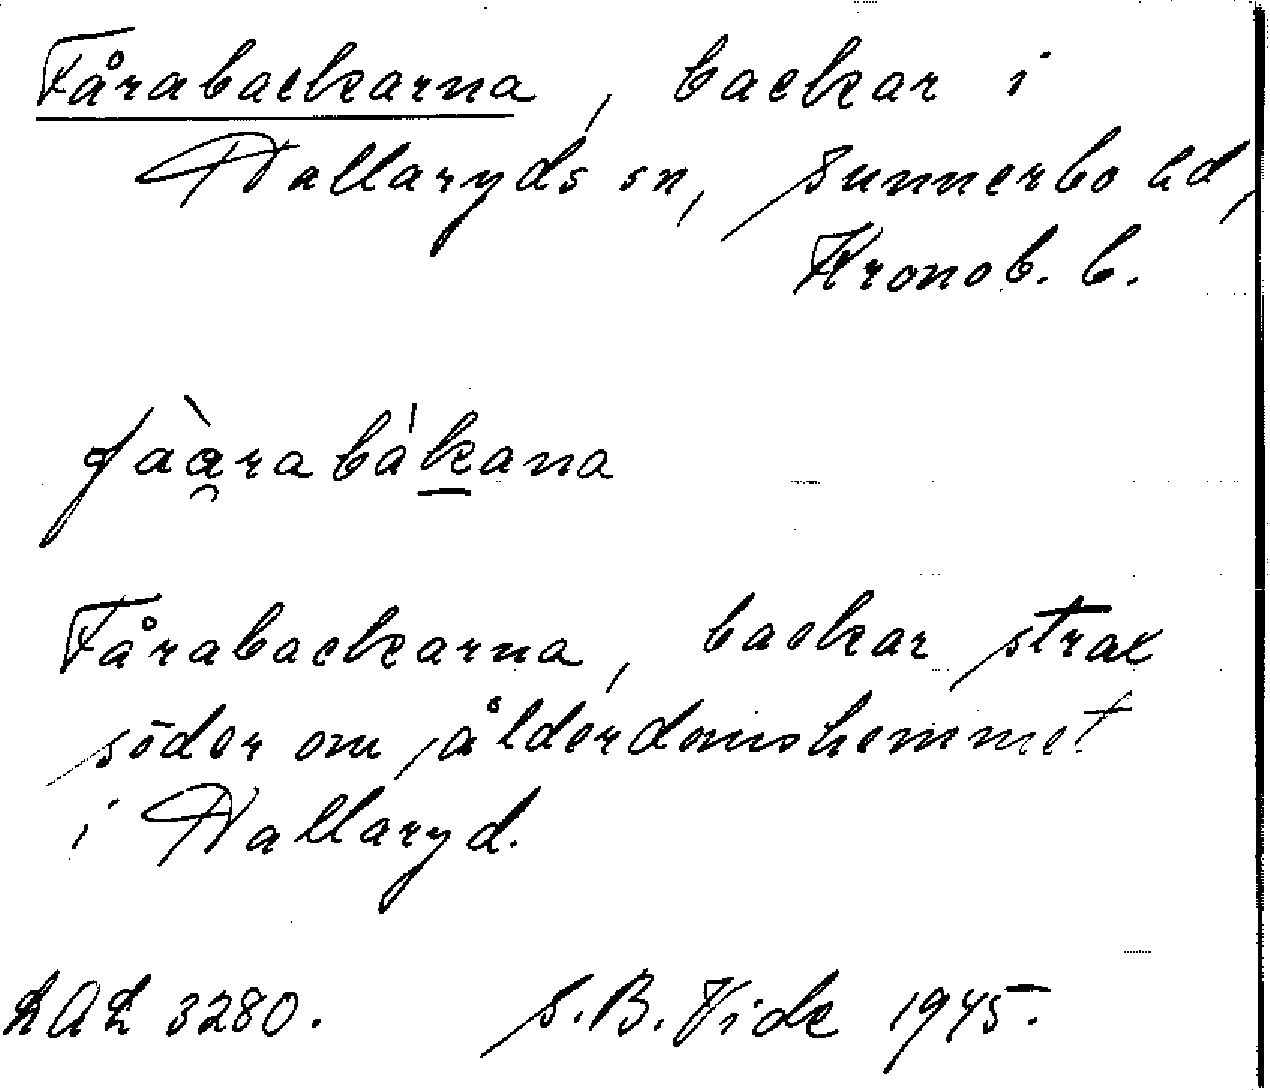 Fårabackarna, backar i
Hallaryds sn, Sunnerbo hd,
Kronob. l.
faàrabákana
Fårabackarna, backar strax
söder om ålderdomshemmet
i Hallaryd.
LAL 3280. S.B. Vide 1945.